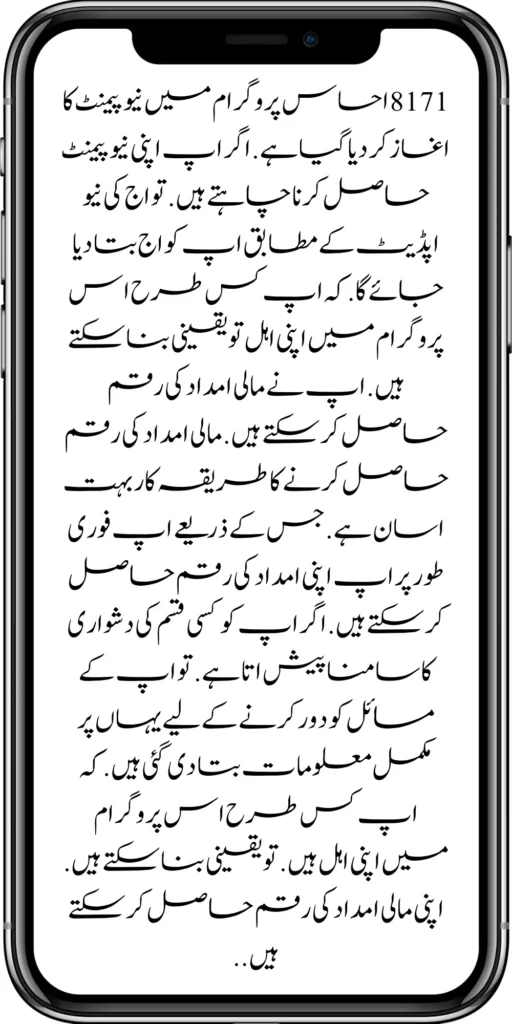 8171احساس پروگرام میں نیو پیمنٹ کا
اغاز کر دیا گیا ہے. اگر اپ اپنی نیو پیمنٹ
حاصل کرنا چاہتے ہیں. تو اج کی نیو
اپڈیٹ کے مطابق اپ کو اج بتا دیا
جائے گا. کہ اپ کس طرح اس
پروگرام میں اپنی اہل تو یقینی بنا سکتے
ہیں. اپ نے مالی امداد کی رقم
حاصل کر سکتے ہیں. مالی امداد کی رقم
حاصل کرنے کا طریقہ کار بہت
اسان ہے. جس کے ذریعے اپ فوری
طور پر اپ اپنی امداد کی رقم حاصل
کر سکتے ہیں. اگر اپ کو کسی قسم کی دشواری
کا سامنا پیش اتا ہے. تو اپ کے
مسائل کو دور کرنے کے لیے یہاں پر
مکمل معلومات بتا دی گئی ہیں. کہ
اپ کس طرح اس پروگرام
میں اپنی اہل ہیں. تو یقینی بنا سکتے ہیں.
اپنی مالی امداد کی رقم حاصل کر سکتے
ہیں..